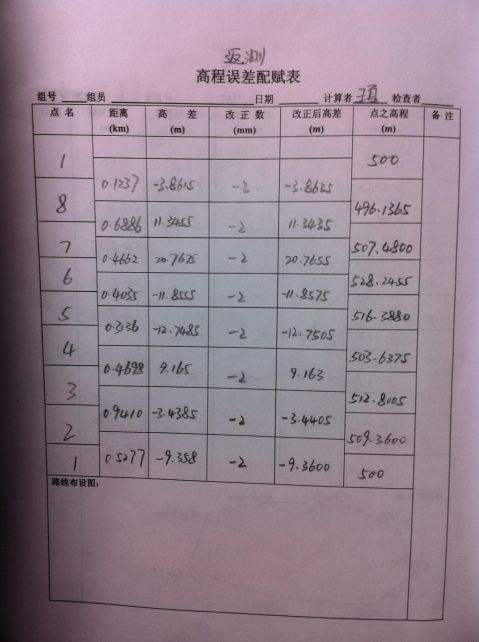 返测
高程误差配赋表
组号 组员 日期 计算者 检查者
点名 距离(km) 高差(m) 改正数(mm) 改正后高差(m) 点之高程(m) 备注
1 500
0.1237 -3.8615 -2 -3.8635
8 496.1365
0.6886 11.3455 -2 11.3435
7 507.4800
0.4662 20.7675 -2 20.7655
6 528.2455
0.4035 -11.8555 -2 -11.8575
5 516.3880
0.3136 -12.7485 -2 -12.7505
4 503.6375
0.4698 9.165 -2 9.163
3 512.8005
0.9410 -3.4385 -2 -3.4405
2 509.3600
0.5277 -9.358 -2 -9.3600
1 500
路线布设图: